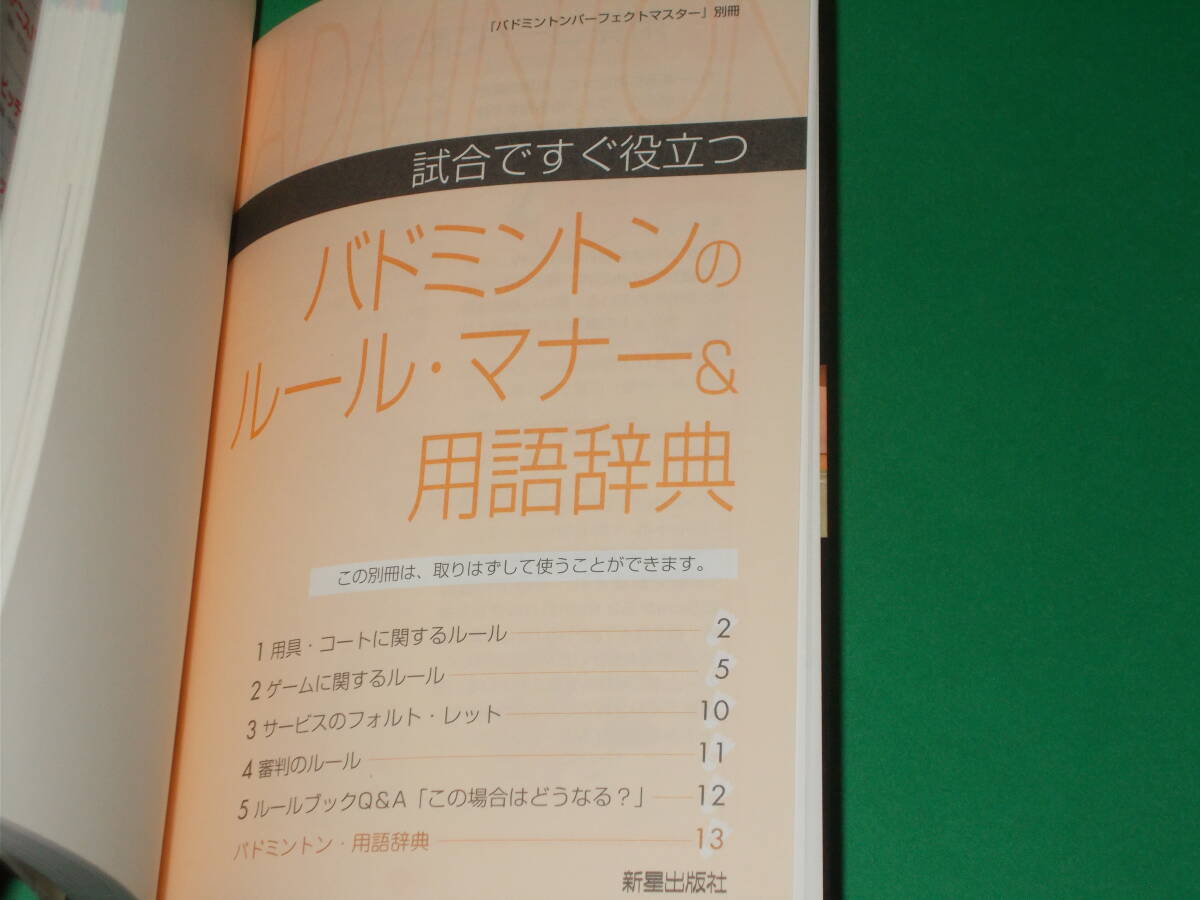 「バドミントンパーフェクトマスター」別冊
ADMINTON
試合ですぐ役立つ
バドミントンの
ルール・マナー&
用語辞典
この別冊は、取りはずして使うことができます。
1 用具・コートに関するルール 2
2 ゲームに関するルール 5
3 サービスのフォルト・レット 10
4 審判のルール 11
5 ルールブックQ&A「この場合はどうなる?」 12
バドミントン・用語辞典 13
新星出版社